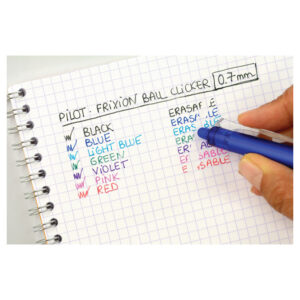 PILOT - FRIXION BALL CLICKER 0.7mm
BLACK ERASABLE
BLUE ERASABLE
LIGHT BLUE ERASABLE
GREEN ERA
VIOLET ER
PINK ERASABLE
RED ERASABLE